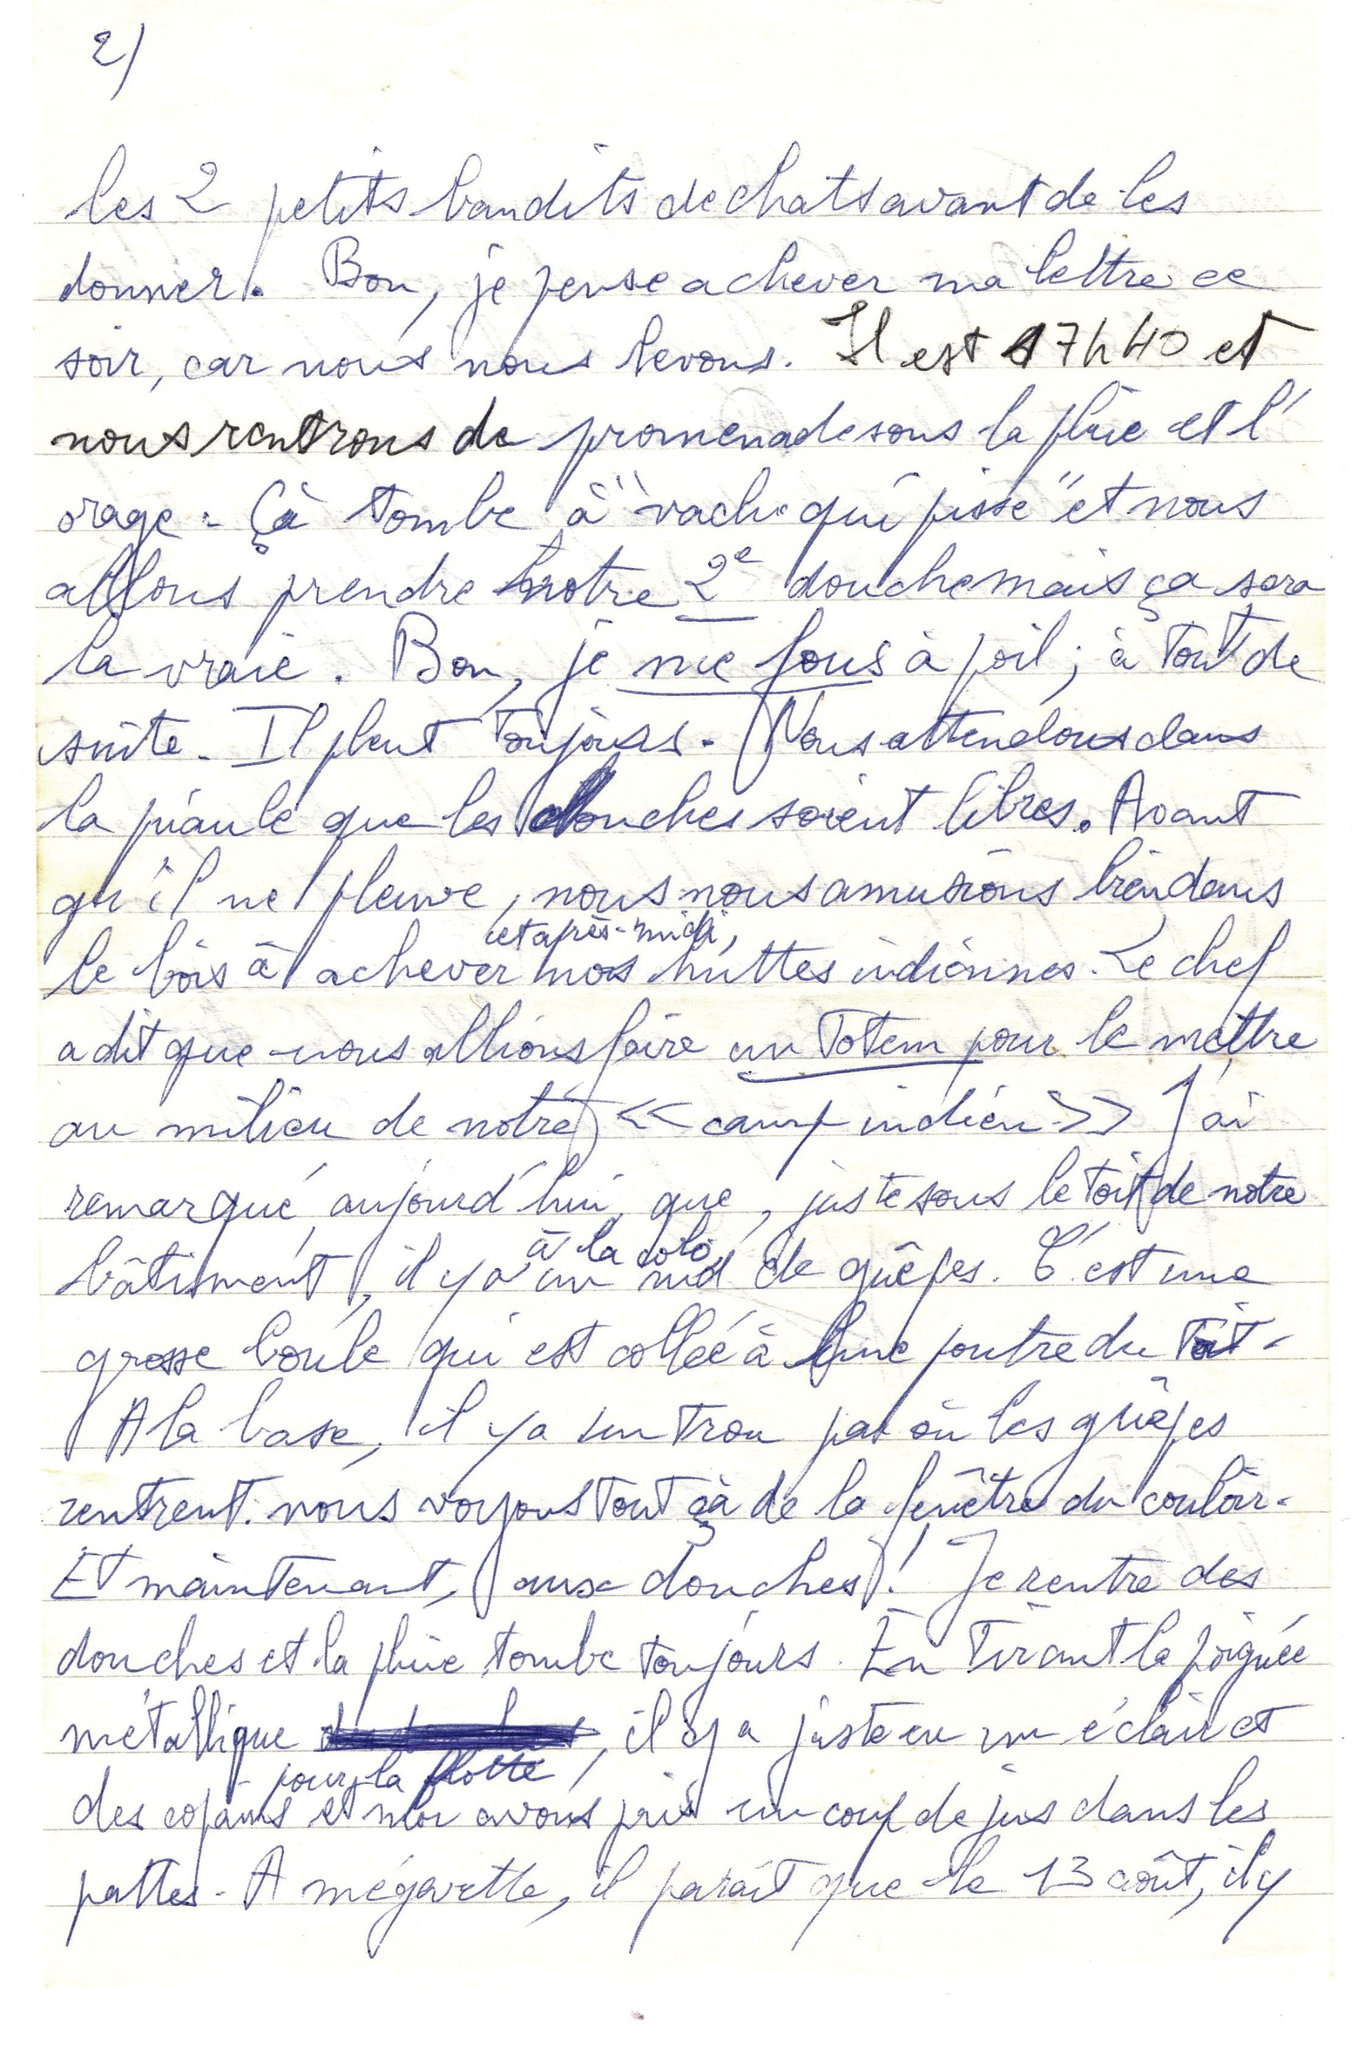 2)
les 2 petits bandits de chats avant de les
donner. Bon, je pense achever ma lettre ce
soir, car nous nous levons. Il est 17h40 et
nous rentrons de promenade sous la pluie et l'
orage. Çà tombe à "vache qui pisse" et nous
allons prendre notre 2e douche mais ça sera
la vraie. Bon, je me fous à poil; à tout de
suite. Il pleut toujours. Nous attendons dans
la piaule que les douches soient libres. Avant
qu'il ne pleuve, nous nous amusions bien dans
cet après-midi,
le bois à achever nos huttes indiennes. Le chef
a dit que nous allions faire un Totem pour le mettre
au milieu de notre << camp indien >> J'ai
remarqué, aujourd'hui, que, juste sous le toit de notre
à la colo,
bâtiment, il y a un nid de guêpes. C'est une
grosse boule qui est collée à une poutre du toit.
A la base, il y a un trou par où les guêpes
rentrent. nous voyons tout çà de la fenêtre du couloir.
Et maintenant, aux douches! Je rentre des
douches et la pluie tombe toujours. En tirant la poignée
métallique, il y a juste eu un éclair et
pour la flotte,
des copains et moi avons pris un coup de jus dans les
pattes. A mégevette, il paraît que le 13 août, il y